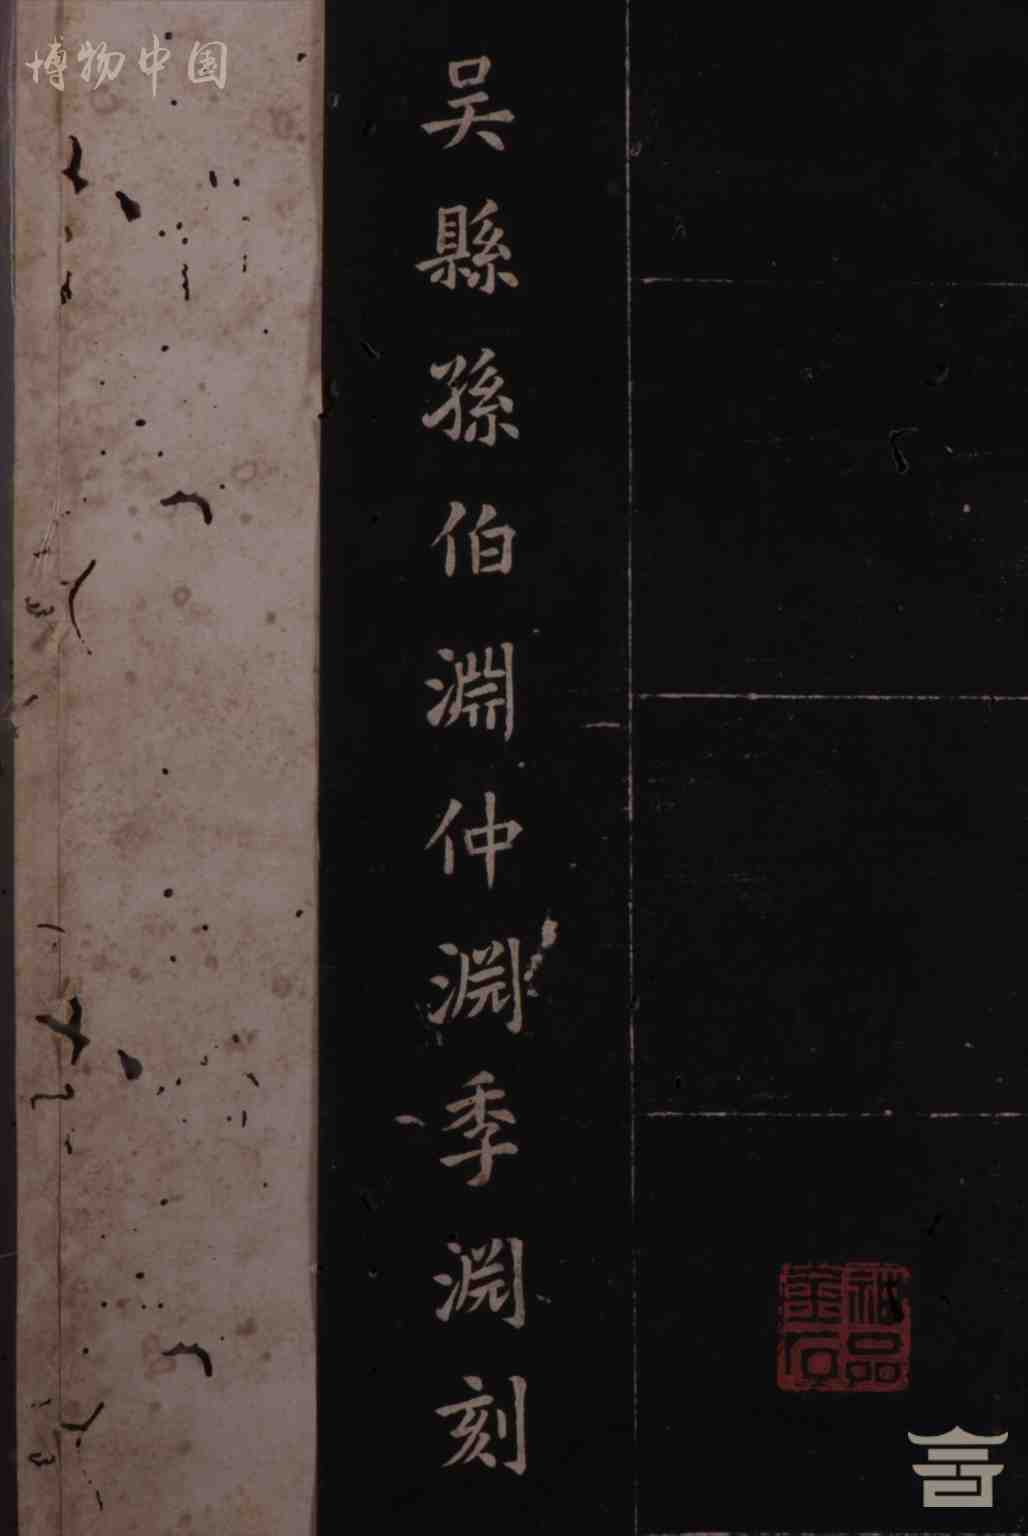 博物中国
吴縣孫伯淵仲淵季淵刻